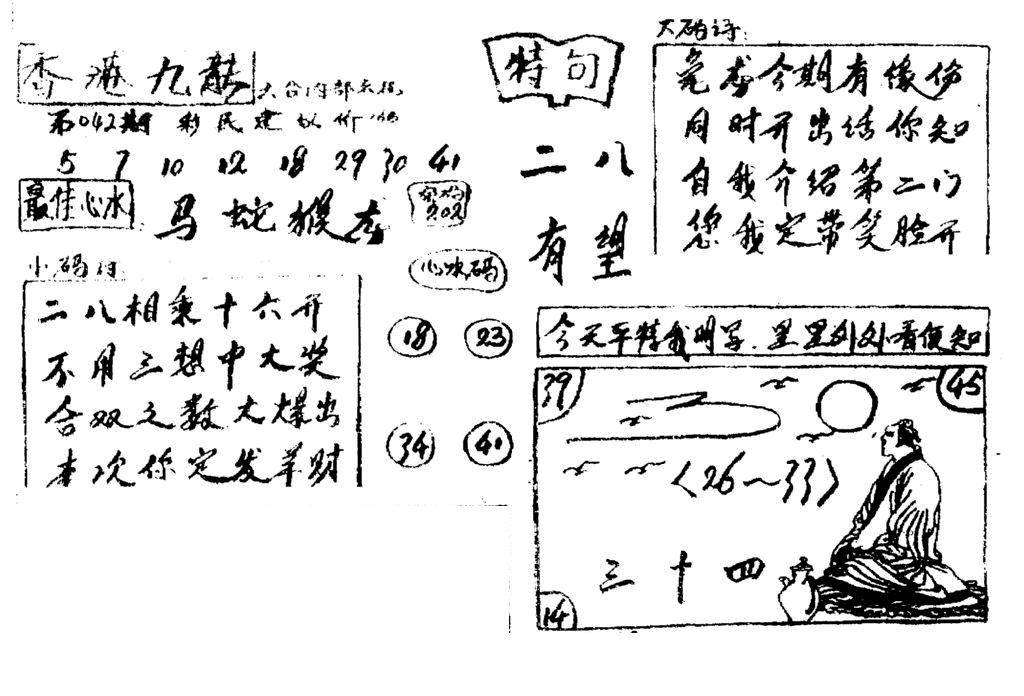 香港九龍
第042期 彩民建议价
5 7 10 12 18 29 30 41
最佳心水
马蛇猴
202
心水码
18 23
34 41
小码诗:
二八相乘十六开
不用三想中大奖
合双之数大爆出
本次你定发羊财
特句
二八
有望
大码诗:
今期有像伤
同时开出话你知
自我介绍第二门
您我定带笑脸开
今天平特我明写.里里外外看便知
39 45
〈26~33〉
三十四
14